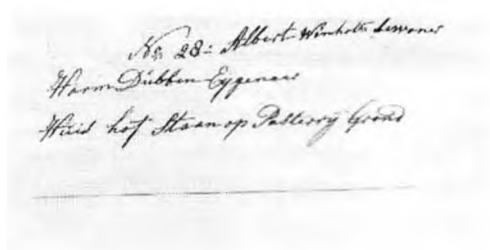 No. 28: Albert Winholts bewoner
Harm Dubben Eygenaar
Huis hof Staan op Pasterry Grond